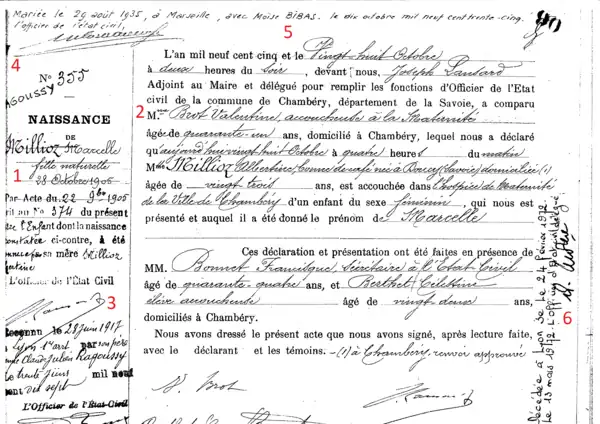 Mariée le 29 août 1935, à Marseille, avec Moïse BIBAS. le dix octobre mil neuf cent trente-cinq.
l'officier de l'état civil,
5
4
N° 355
AGOUSSY
NAISSANCE
DE
Millioz Marcelle
fille naturelle
1
28 Octobre 1905
Par Acte du 22 9bre 1905
rit au No 374 du présent
l'Enfant dont la naissance
constatée ci-contre, à été
sa mère Millioz
L'officier de l'État Civil
3
Reconnu le 28 juin 1917
Lyon 1er arrt par son père
Claude Julien Ragoussy
Le trente juin mil neuf
cent dix sept
L'Officier de l'État-Civil
L'an mil neuf cent cinq et le Vingt huit Octobre
à deux heures du soir, devant nous, Joseph
Adjoint au Maire et délégué pour remplir les fonctions d'Officier de l'Etat
civil de la commune de Chambéry, département de la Savoie, a comparu
2 Mme Brot Valentine, accoucheuse à la Maternité
âgée de quarante-un ans, domicilié à Chambéry, lequel nous a déclaré
qu'aujourd'hui vingt huit Octobre à quatre heures du matin
Millioz Albertine, née à (Savoie) domiciliée (1)
âgée de vingt trois ans, est accouchée dans l'hospice de Maternité
de la Ville de Chambéry d'un enfant du sexe féminin, qui nous est
présenté et auquel il a été donné le prénom de Marcelle
Ces déclaration et présentation ont été faites en présence de
MM. Bonnet Françisque, Secrétaire à l'Etat Civil
âgé de quarante-quatre ans, et Berthet Célestine
élève accoucheuse âgé de vingt deux ans,
domiciliés à Chambéry.
Nous avons dressé le présent acte que nous avons signé, après lecture faite,
avec le déclarant et les témoins. - (1) à Chambéry, renvoi approuvé
V. Brot
Décédée à Lyon 3e Le 24 février 1972
Le 13 mars 1972. L'officier d'état civil délégué
6